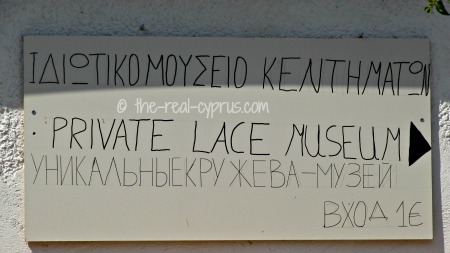 ΙΔΙΩΤΙΚΟ ΜΟΥΣΕΙΟ ΚΕΝΤΗΜΑΤΩΝ
© the-real-cyprus.com
PRIVATE LACE MUSEUM
УНИКАЛЬНЫЕ КРУЖЕВА-МУЗЕЙ
ВХОД 1€